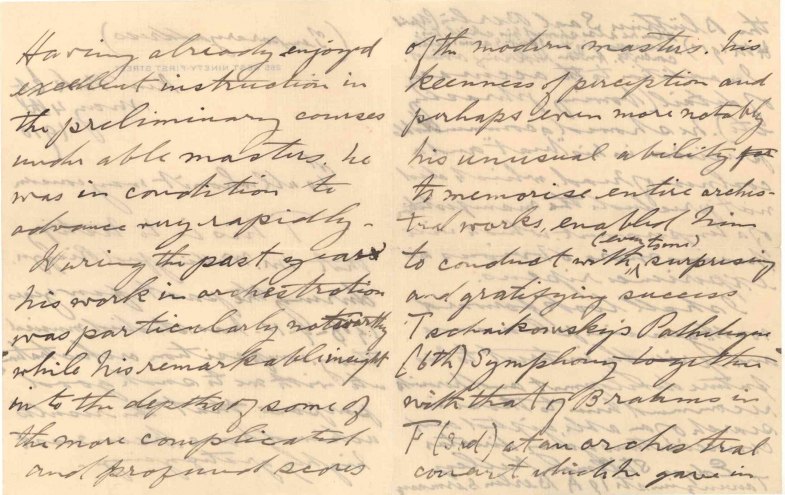 Having already enjoyed
excellent instruction in
the preliminary courses
under able masters, he
was in condition to
advance very rapidly -
During the past year
his work in orchestration
was particularly noteworthy
while his remarkable insight
into the depths of some of
the more complicated
and profound scores
of the modern masters, his
keenness of perception and
perhaps even more notably
his unusual ability
to memorise entire orches-
tral works, enabled him
(even to me)
to conduct with surprising
and gratifying success
Tschaikowsky's Pathetique
(6th) Symphony together
with that of Brahms in
F (3rd) at an orchestral
concert which he gave in